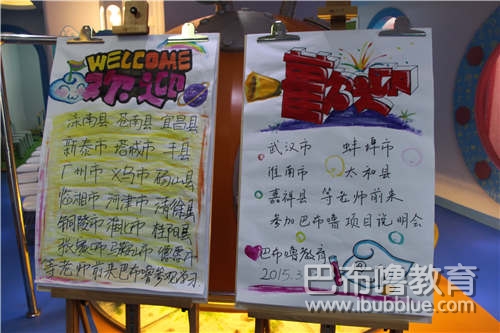 WELCOME
欢迎
滦南县 苍南县 宜昌县
新泰市 塔城市
广州市 义乌市 砀山县
临湘市 河津市 清徐县
铜陵市 淮北市 桂阳县
等老师前来巴布噜参观学习
欢迎
武汉市 蚌埠市
淮南市 太和县
嘉祥县 等老师前来
参加巴布噜项目说明会
巴布噜教育
2015.3
巴布噜教育
www.ibubblue.com